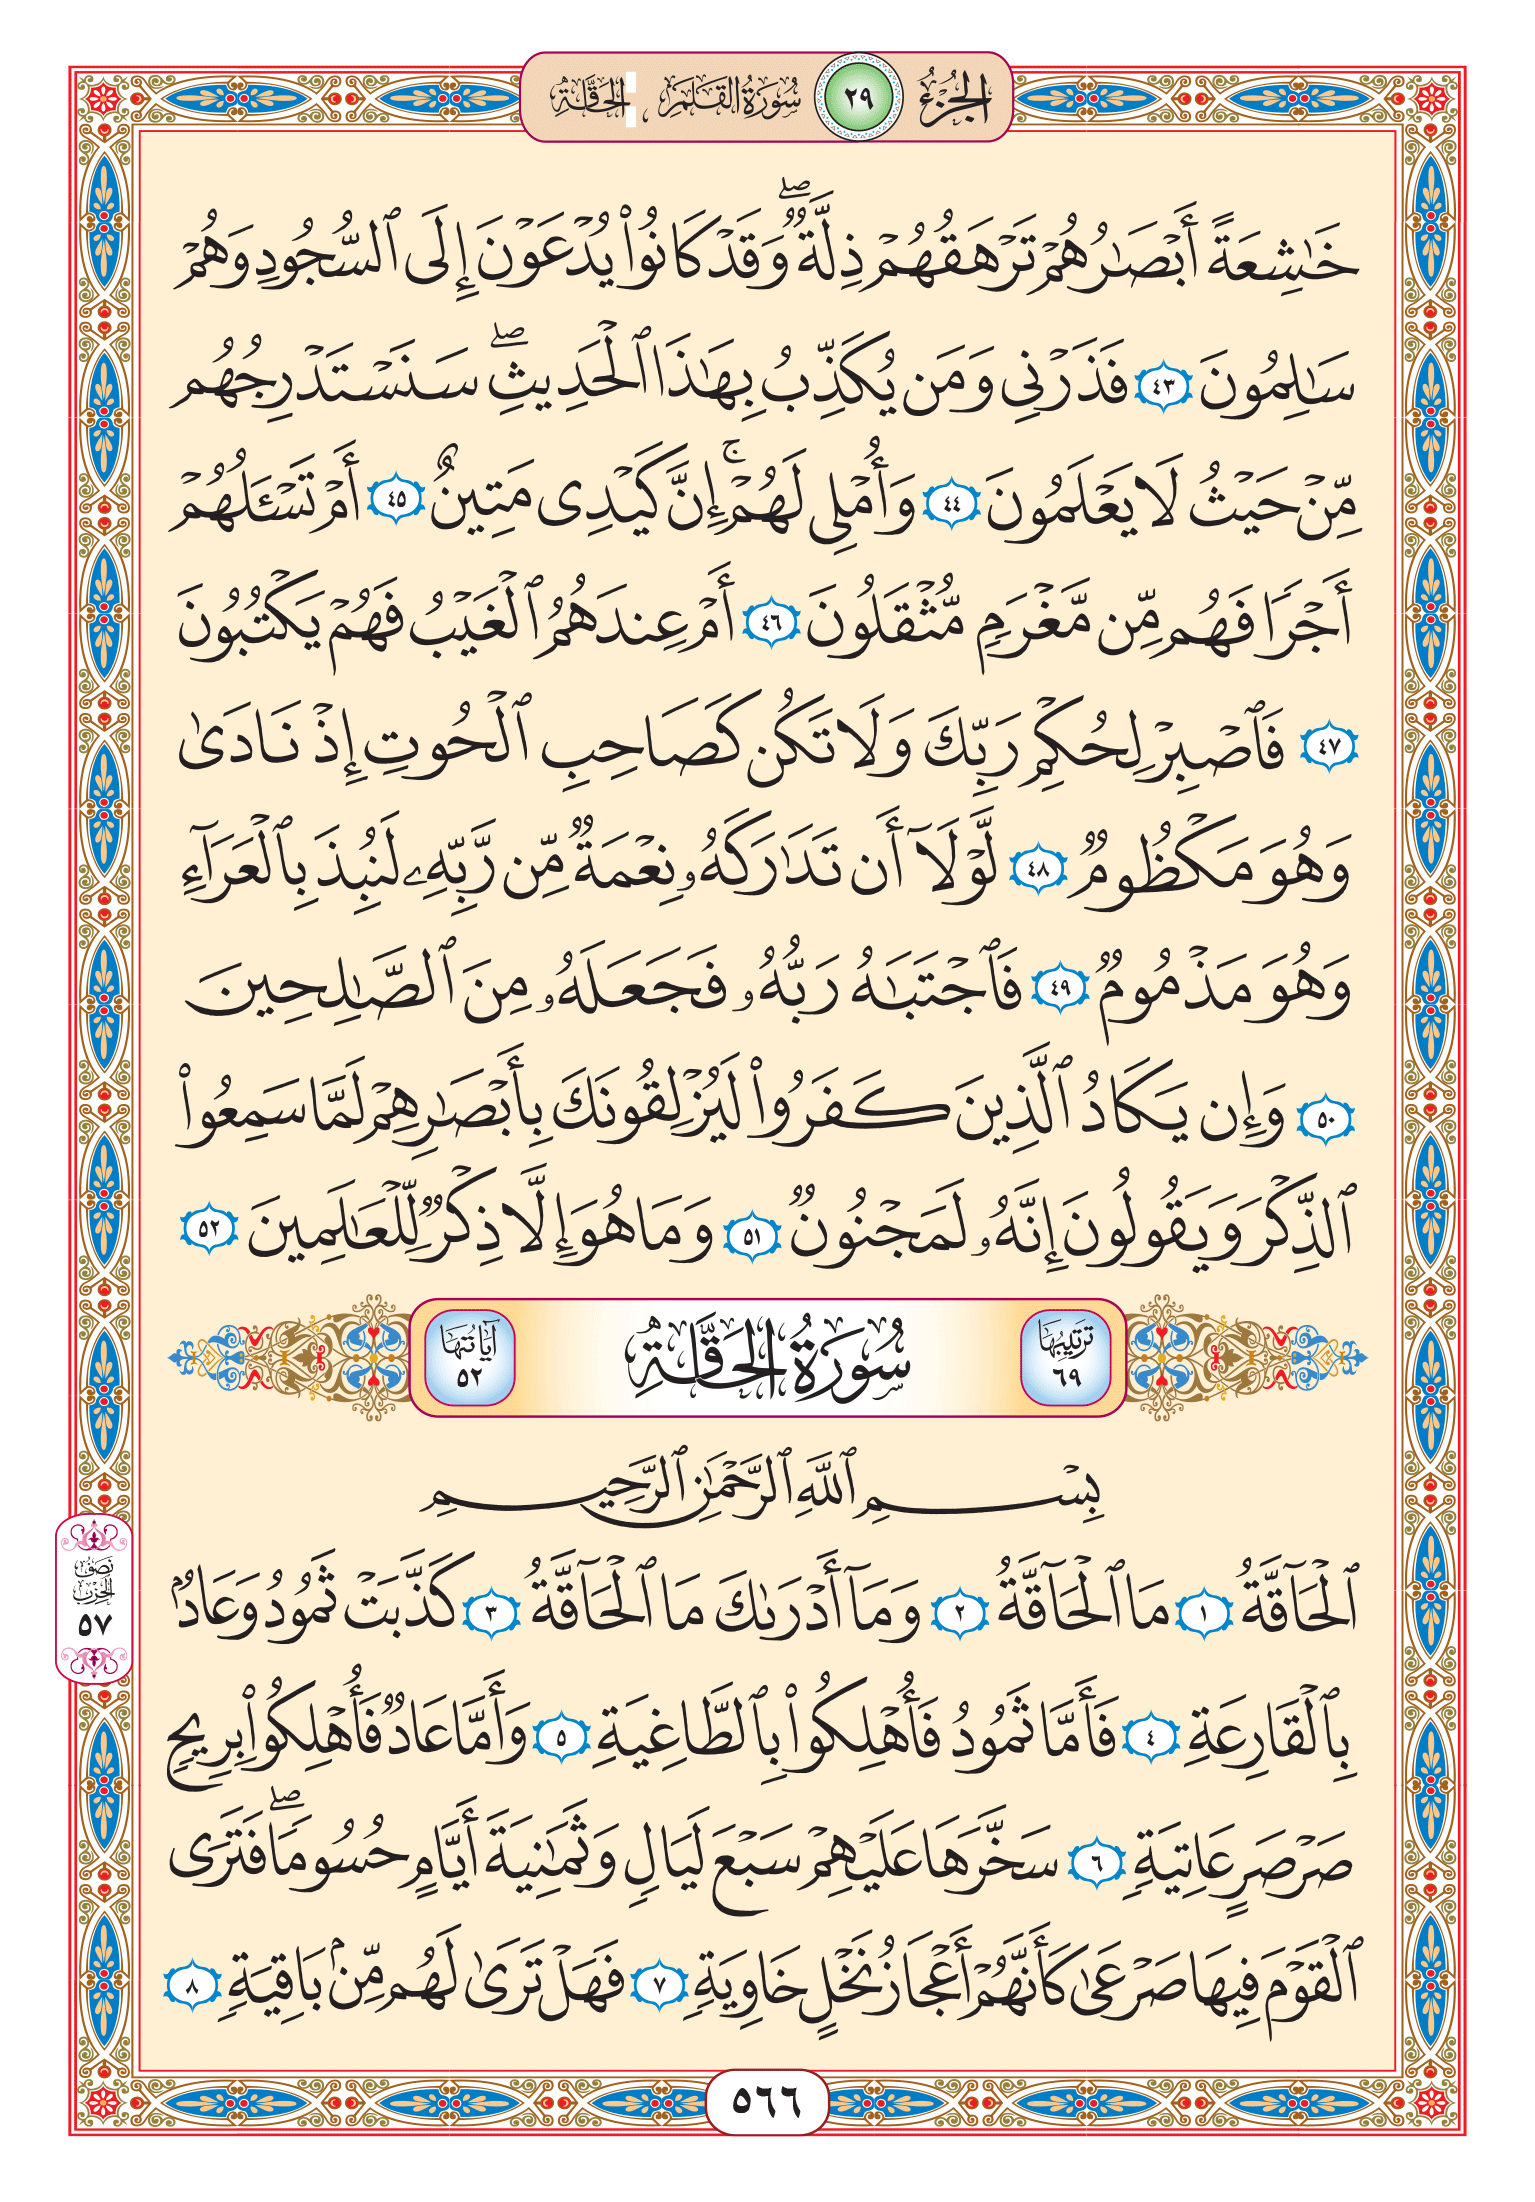 الجزء ٢٩ سورة القلم ، الحاقة
خَٰشِعَةً أَبْصَٰرُهُمْ تَرْهَقُهُمْ ذِلَّةٌ ۖ وَقَدْ كَانُوا۟ يُدْعَوْنَ إِلَى ٱلسُّجُودِ وَهُمْ
سَٰلِمُونَ ٤٣ فَذَرْنِى وَمَن يُكَذِّبُ بِهَٰذَا ٱلْحَدِيثِ ۖ سَنَسْتَدْرِجُهُم
مِّنْ حَيْثُ لَا يَعْلَمُونَ ٤٤ وَأُمْلِى لَهُمْ ۚ إِنَّ كَيْدِى مَتِينٌ ٤٥ أَمْ تَسْـَٔلُهُمْ
أَجْرًا فَهُم مِّن مَّغْرَمٍ مُّثْقَلُونَ ٤٦ أَمْ عِندَهُمُ ٱلْغَيْبُ فَهُمْ يَكْتُبُونَ
٤٧ فَٱصْبِرْ لِحُكْمِ رَبِّكَ وَلَا تَكُن كَصَاحِبِ ٱلْحُوتِ إِذْ نَادَىٰ
وَهُوَ مَكْظُومٌ ٤٨ لَّوْلَآ أَن تَدَٰرَكَهُۥ نِعْمَةٌ مِّن رَّبِّهِۦ لَنُبِذَ بِٱلْعَرَآءِ
وَهُوَ مَذْمُومٌ ٤٩ فَٱجْتَبَٰهُ رَبُّهُۥ فَجَعَلَهُۥ مِنَ ٱلصَّٰلِحِينَ
٥٠ وَإِن يَكَادُ ٱلَّذِينَ كَفَرُوا۟ لَيُزْلِقُونَكَ بِأَبْصَٰرِهِمْ لَمَّا سَمِعُوا۟
ٱلذِّكْرَ وَيَقُولُونَ إِنَّهُۥ لَمَجْنُونٌ ٥١ وَمَا هُوَ إِلَّا ذِكْرٌ لِّلْعَٰلَمِينَ ٥٢
ترتيبها ٦٩ سُورَةُ الحَاقَّةِ آياتها ٥٢
بِسْمِ ٱللَّهِ ٱلرَّحْمَٰنِ ٱلرَّحِيمِ
ٱلْحَآقَّةُ ١ مَا ٱلْحَآقَّةُ ٢ وَمَآ أَدْرَىٰكَ مَا ٱلْحَآقَّةُ ٣ كَذَّبَتْ ثَمُودُ وَعَادٌۢ
بِٱلْقَارِعَةِ ٤ فَأَمَّا ثَمُودُ فَأُهْلِكُوا۟ بِٱلطَّاغِيَةِ ٥ وَأَمَّا عَادٌ فَأُهْلِكُوا۟ بِرِيحٍ
صَرْصَرٍ عَاتِيَةٍ ٦ سَخَّرَهَا عَلَيْهِمْ سَبْعَ لَيَالٍ وَثَمَٰنِيَةَ أَيَّامٍ حُسُومًا ۖ فَتَرَى
ٱلْقَوْمَ فِيهَا صَرْعَىٰ كَأَنَّهُمْ أَعْجَازُ نَخْلٍ خَاوِيَةٍ ٧ فَهَلْ تَرَىٰ لَهُم مِّنۢ بَاقِيَةٍ ٨
نصف
الحزب
٥٧
٥٦٦